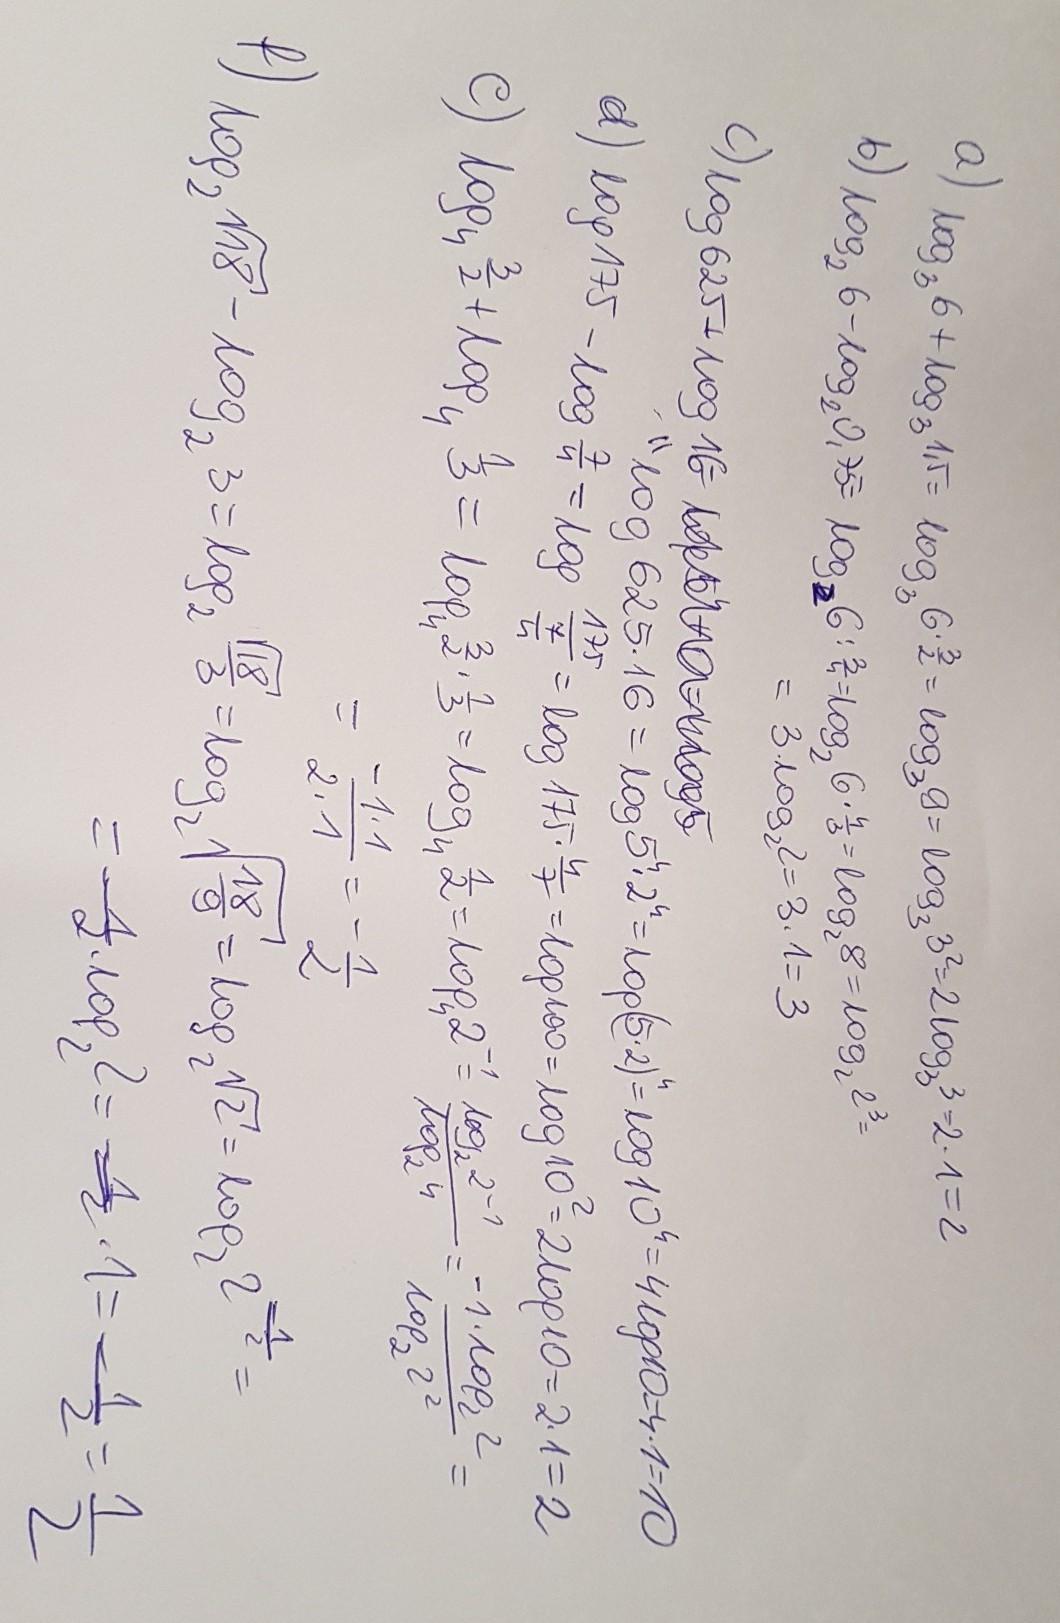 a) log₃ 6 + log₃ 1,5 = log₃ 6 · 3/2 = log₃ 9 = log₃ 3² = 2 log₃ 3 = 2 · 1 = 2
b) log₂ 6 - log₂ 0,75 = log₂ 6 : 3/4 = log₂ 6 · 4/3 = log₂ 8 = log₂ 2³ =
= 3 · log₂ 2 = 3 · 1 = 3
c) log 625 + log 16 =
= log 625 · 16 = log 5⁴ · 2⁴ = log (5·2)⁴ = log 10⁴ = 4 log 10 = 4 · 1 = 10
d) log 175 - log 7/4 = log 175/(7/4) = log 175 · 4/7 = log 100 = log 10² = 2 log 10 = 2 · 1 = 2
e) log₄ 3/2 + log₄ 1/3 = log₄ 3/2 · 1/3 = log₄ 1/2 = log₄ 2⁻¹ = log₂ 2⁻¹ / log₂ 4 = -1 · log₂ 2 / log₂ 2² =
= -1·1 / 2·1 = - 1/2
f) log₂ √18 - log₂ 3 = log₂ √18/3 = log₂ √(18/9) = log₂ √2 = log₂ 2^(1/2) =
= 1/2 · log₂ 2 = 1/2 · 1 = - 1/2 = 1/2